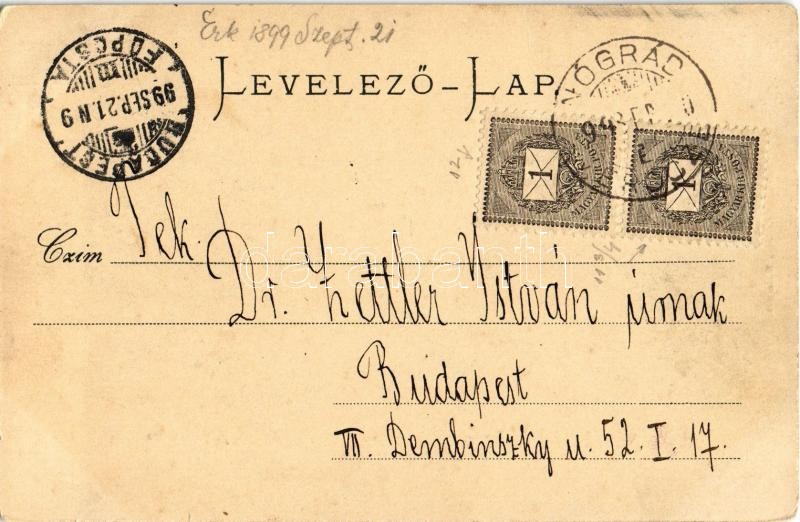 Érk 1899 Szept. 21
LEVELEZŐ-LAP.
BUDAPEST FŐPOSTA
99 SEP. 21. N 9
NÓGRÁD
1
1
12¼
11¾
Czim Tek.
Dr. Zettler István úrnak
Budapest
VII. Dembinszky u. 52. I. 17.
darabanth